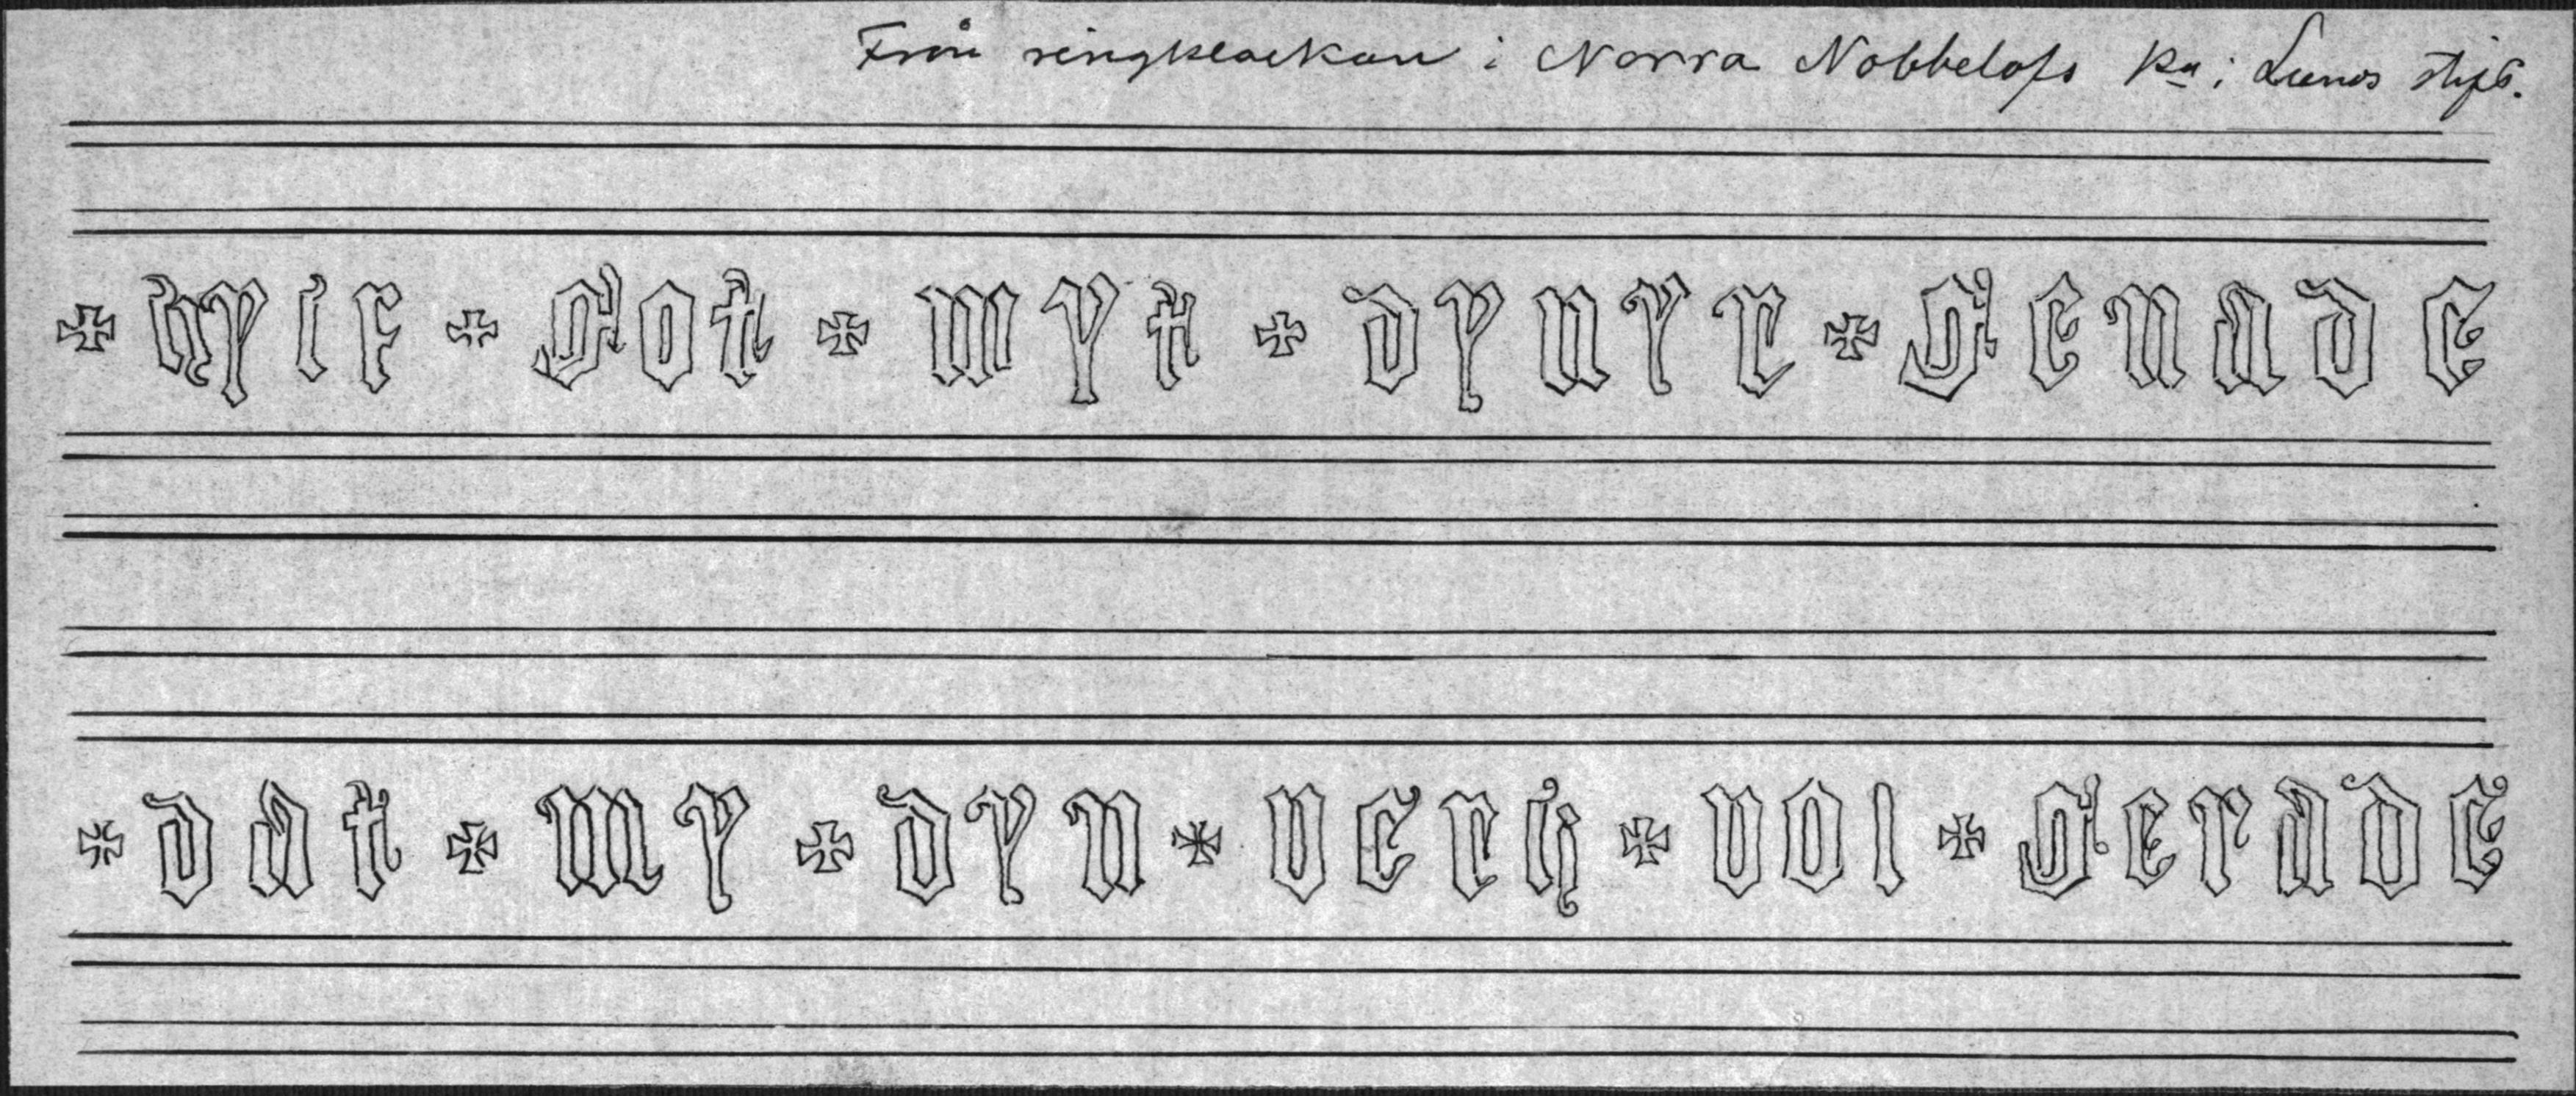 Från ringklockan i Norra Nobbelofs ka i Lunds stift.
✠ hyif ✠ got ✠ myt ✠ dynyr ✠ genade
✠ dat ✠ my ✠ dyn ✠ verh ✠ vol ✠ gerade